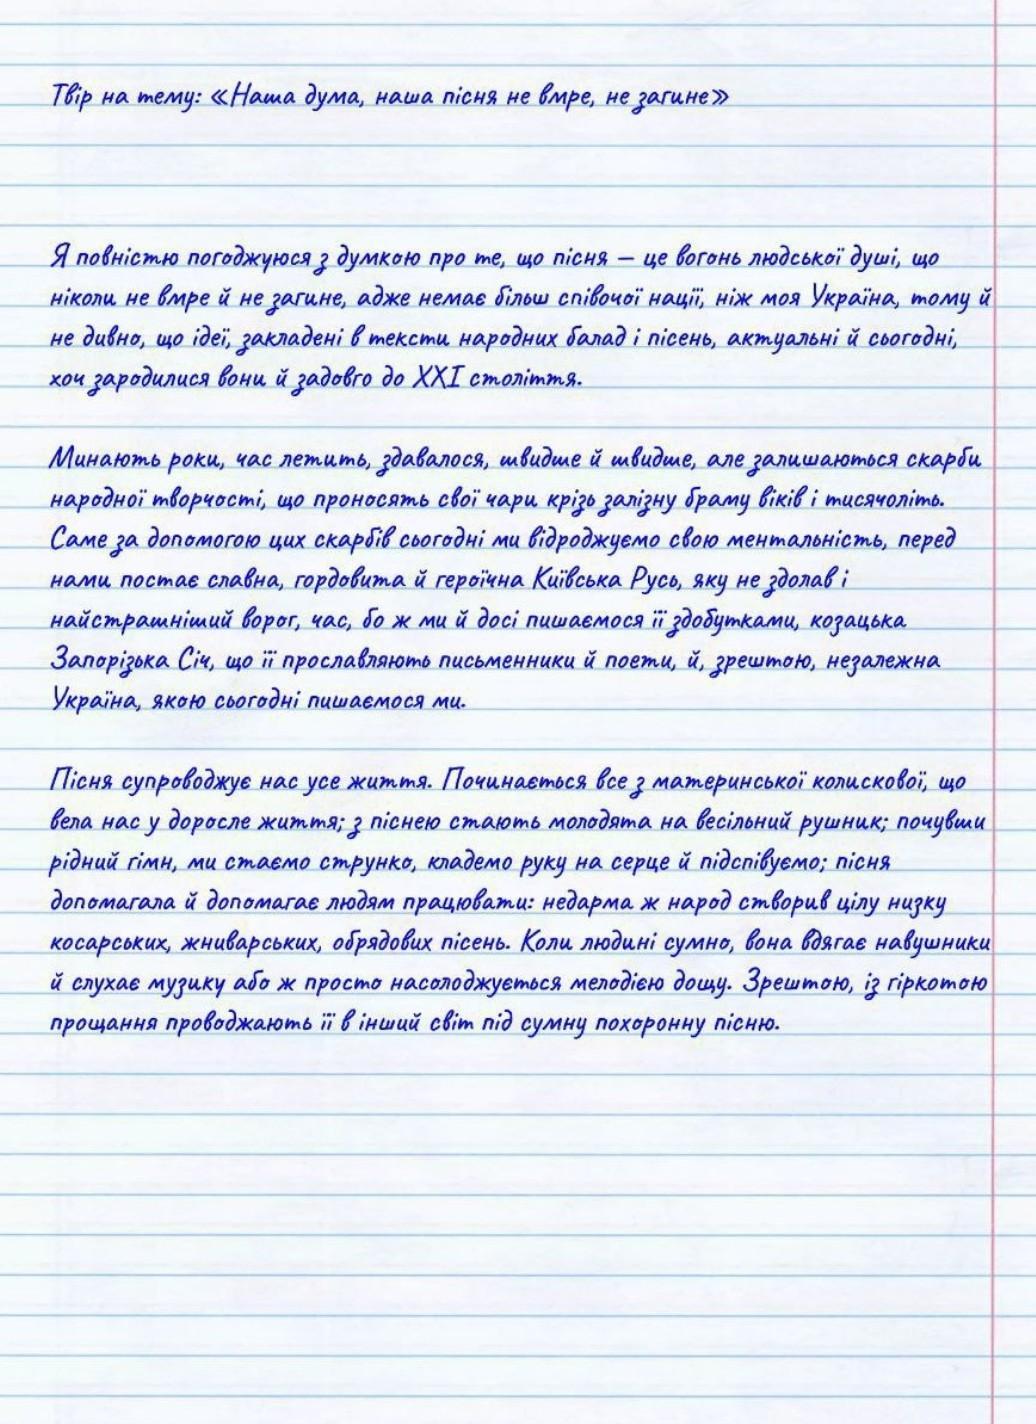 Твір на тему: «Наша дума, наша пісня не вмре, не загине»
Я повністю погоджуюся з думкою про те, що пісня — це вогонь людської душі, що
ніколи не вмре й не загине, адже немає більш співочої нації, ніж моя Україна, тому й
не дивно, що ідеї, закладені в тексти народних балад і пісень, актуальні й сьогодні,
хоч зародилися вони й задовго до XXI століття.
Минають роки, час летить, здавалося, швидше й швидше, але залишаються скарби
народної творчості, що проносять свої чари крізь залізну браму віків і тисячоліть.
Саме за допомогою цих скарбів сьогодні ми відроджуємо свою ментальність, перед
нами постає славна, гордовита й героїчна Київська Русь, яку не здолав і
найстрашніший ворог, час, бо ж ми й досі пишаємося її здобутками, козацька
Запорізька Січ, що її прославляють письменники й поети, й, зрештою, незалежна
Україна, якою сьогодні пишаємося ми.
Пісня супроводжує нас усе життя. Починається все з материнської колискової, що
вела нас у доросле життя; з піснею стають молодята на весільний рушник; почувши
рідний гімн, ми стаємо струнко, кладемо руку на серце й підспівуємо; пісня
допомагала й допомагає людям працювати: недарма ж народ створив цілу низку
косарських, жниварських, обрядових пісень. Коли людині сумно, вона вдягає навушники
й слухає музику або ж просто насолоджується мелодією дощу. Зрештою, із гіркотою
прощання проводжають її в інший світ під сумну похоронну пісню.